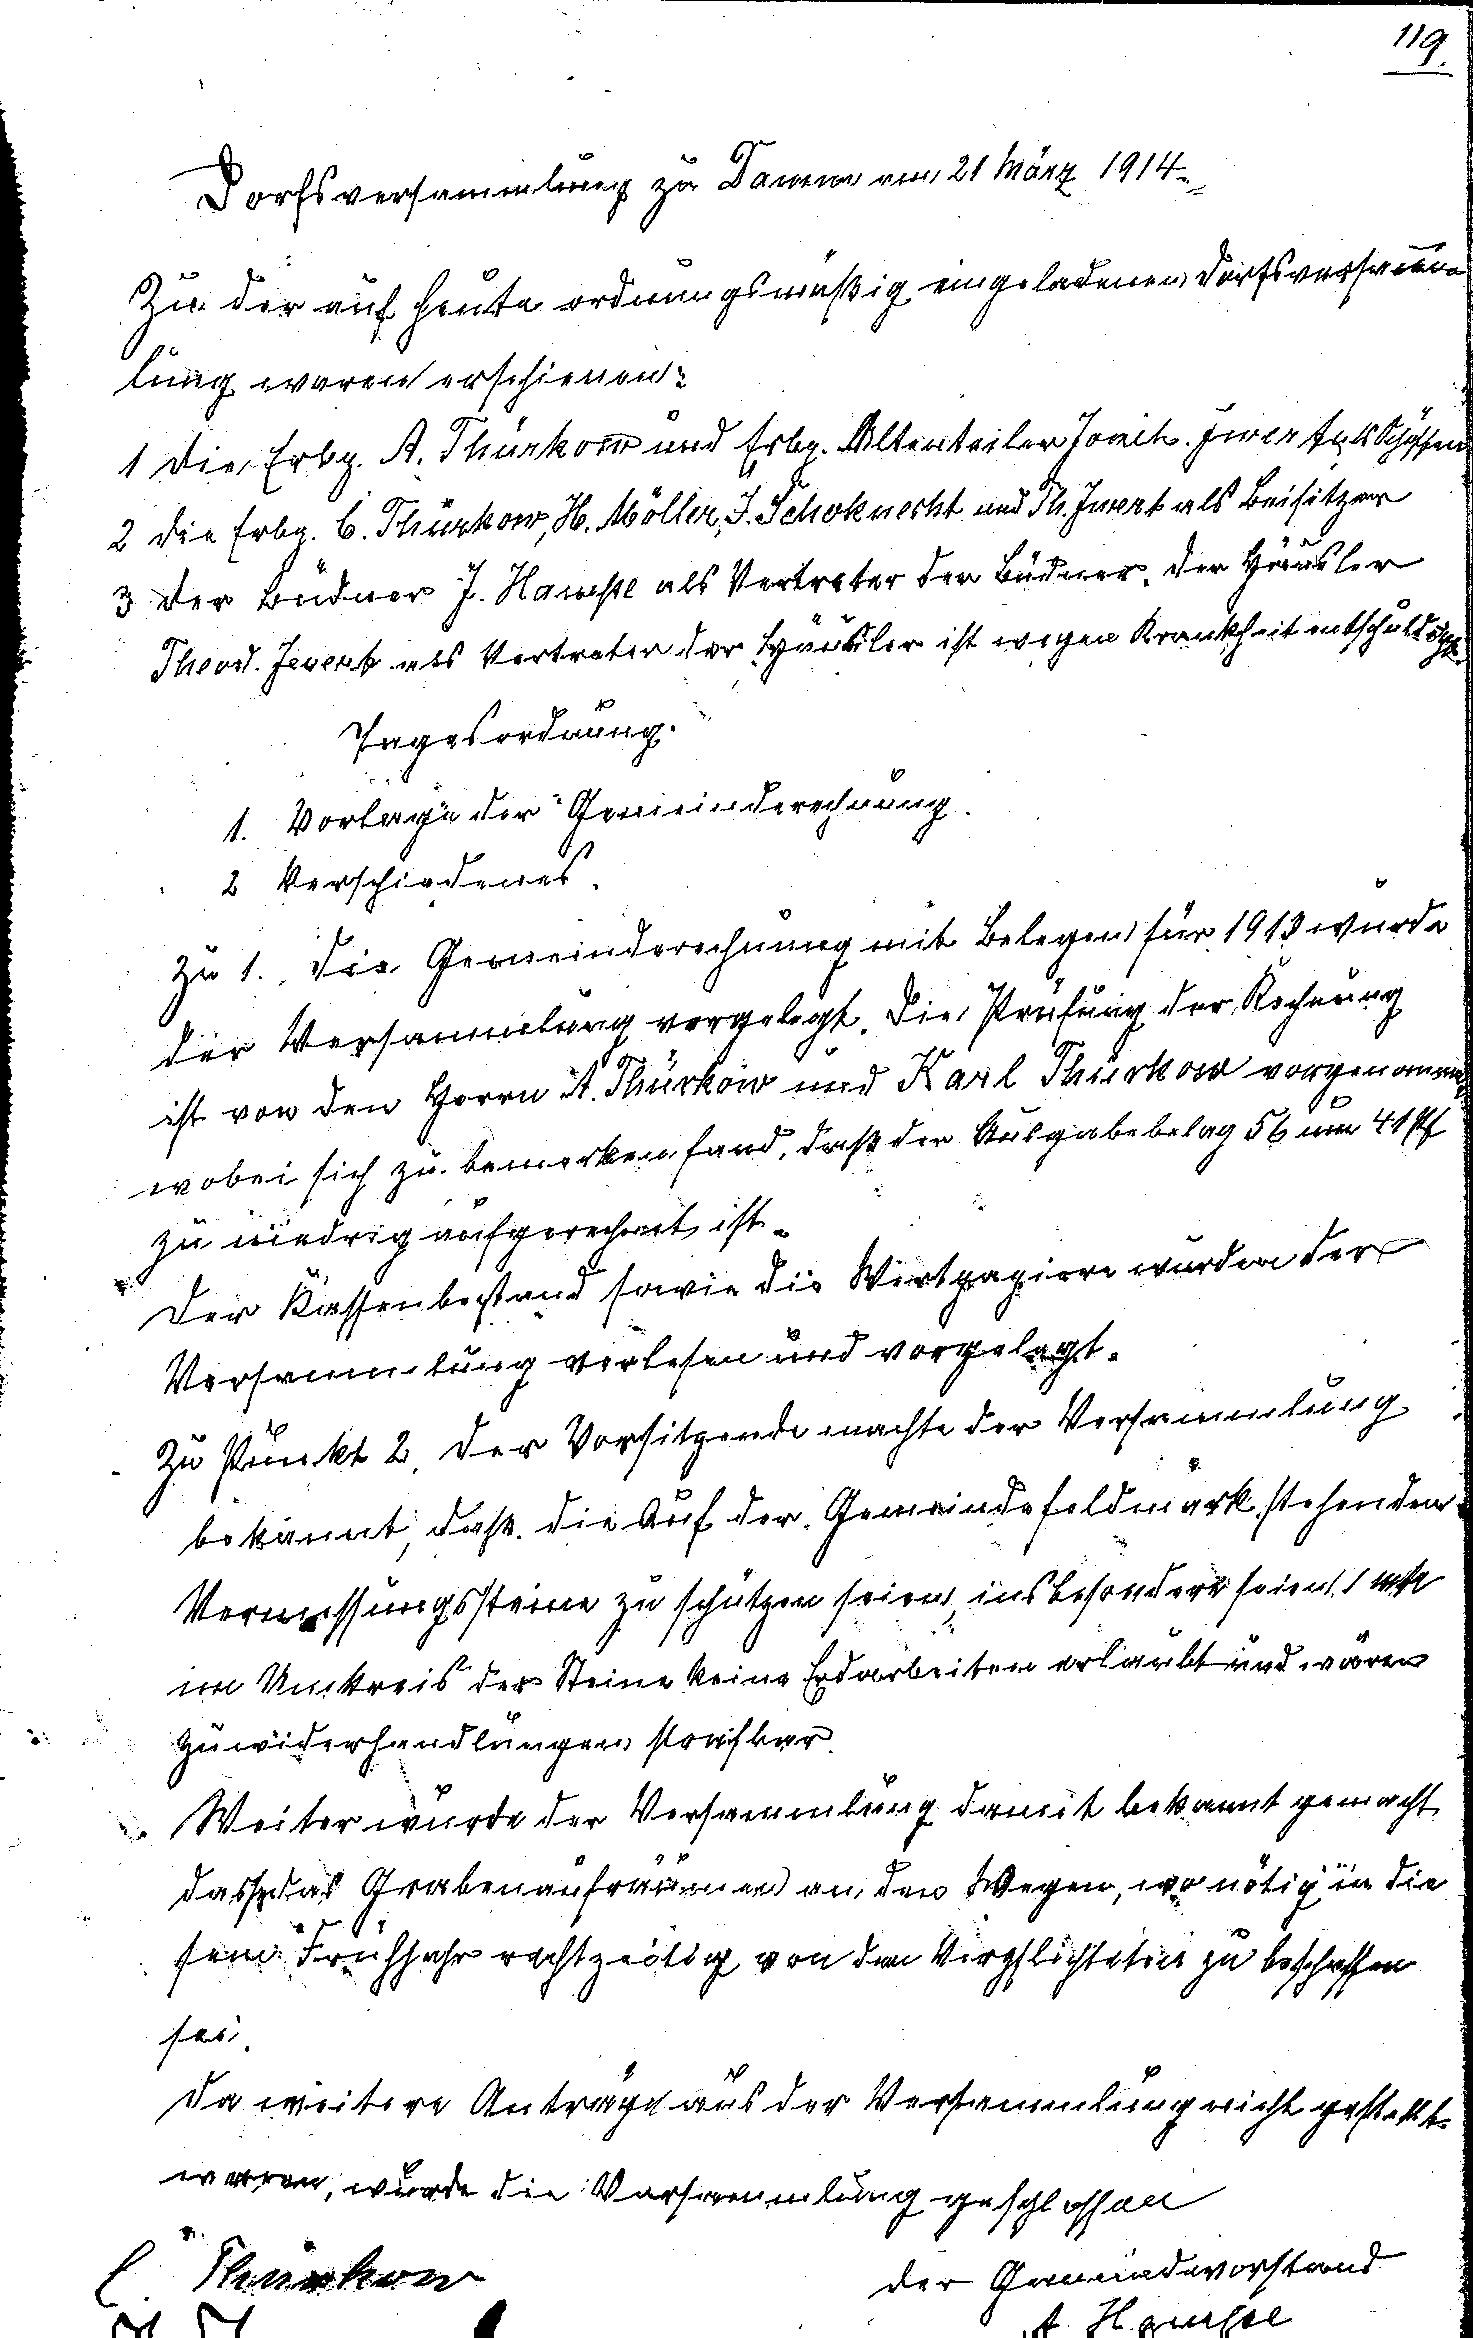 119.
Dorfsversammlung zu Damm am 21 März 1914.
Zu der auf heute ordnungsmäßig eingeladenen Dorfsversamm
lung waren erschienen:
1 die Erbp. A. Thürkow und Erbp. Altenteiler Joach. Jwert als Schöffen
2 die Erbp. C. Thürkow, H. Möller, J. Schoknecht und Th. Jwert als Beisitzer
3 der Büdner J. Hampe als Vertreter der Büdner. Der Häusler
Theod. Jewert als Vertreter der Häusler ist wegen Krankheit entschuldigt.
Tagesordnung.
1. Vorlage der Gemeinderechnung.
2 Verschiedenes.
Zu 1. Die Gemeinderechnung mit Belegen für 1913 wurde
der Versammlung vorgelegt. Die Prüfung der Rechnung
ist von den Herrn A. Thürkow und Karl Thürkow vorgenommen,
wobei sich zu bemerken fand, daß der Ausgabebelag 56 um 41 Pf
zu niedrig aufgerechnet ist.
Der Kassenbestand sowie die Wertpapiere wurden der
Versammlung verlesen und vorgelegt.
Zu Punkt 2. Der Vorsitzende machte der Versammlung
bekannt, daß die auf der Gemeindefeldmark stehenden
Vermessungssteine zu schützen seien, insbesondere seien 1 mtr
im Umkreis der Steine keine Erdarbeiten erlaubt und wären
Zuwiderhandlungen strafbar.
Weiter wurde der Versammlung damit bekannt gemacht
dass das Grabenaufräumen an den Wegen, wo nötig in die
sem Frühjahr rechtzeitig von den Verpflichteten zu beschaffen
sei.
Da weitere Anträge aus der Versammlung nicht gestellt
waren, wurde die Versammlung geschlossen
C. Thürkow
der Gemeindevorstand
A. Hampe